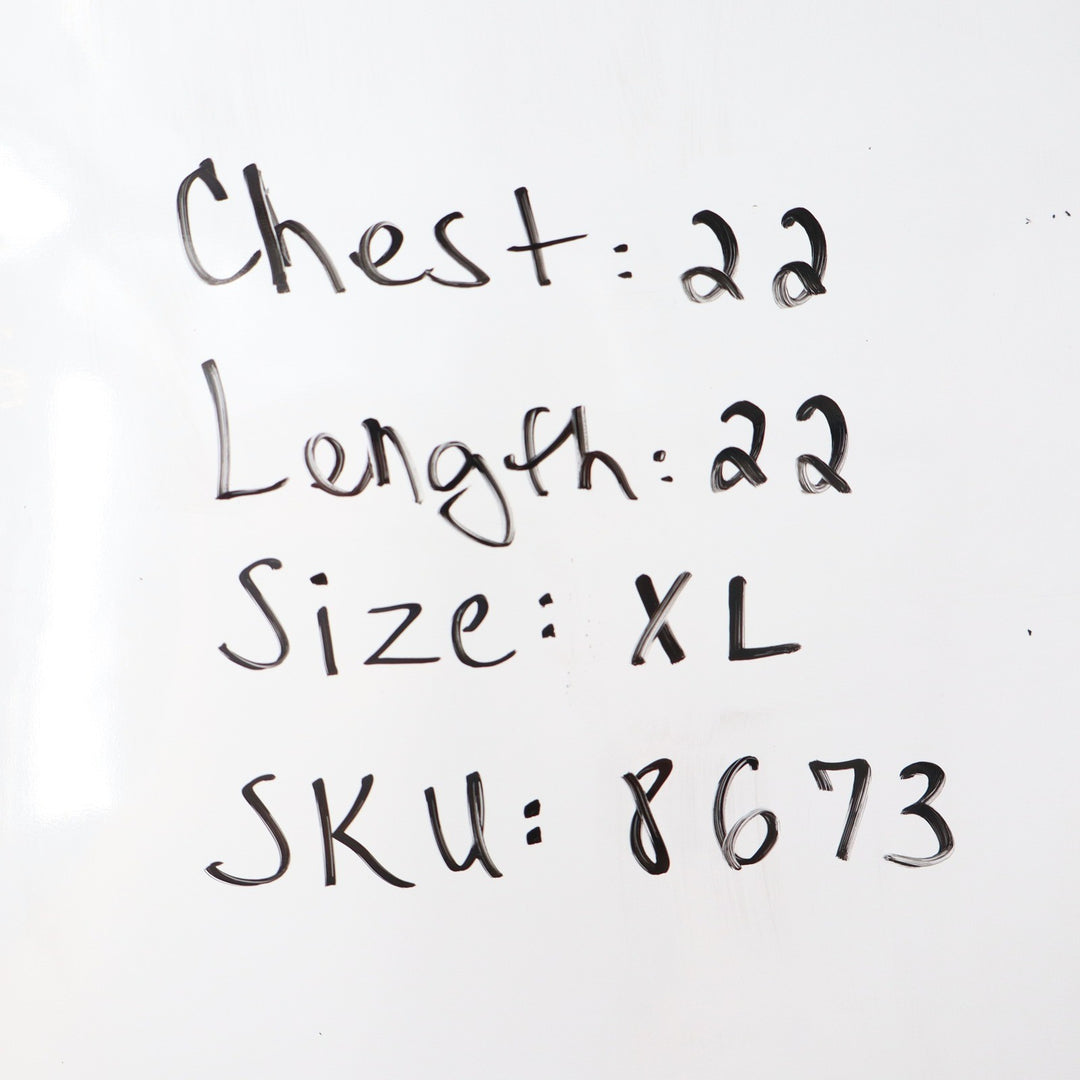 Chest: 22
Length: 22
Size: XL
SKU: 8673